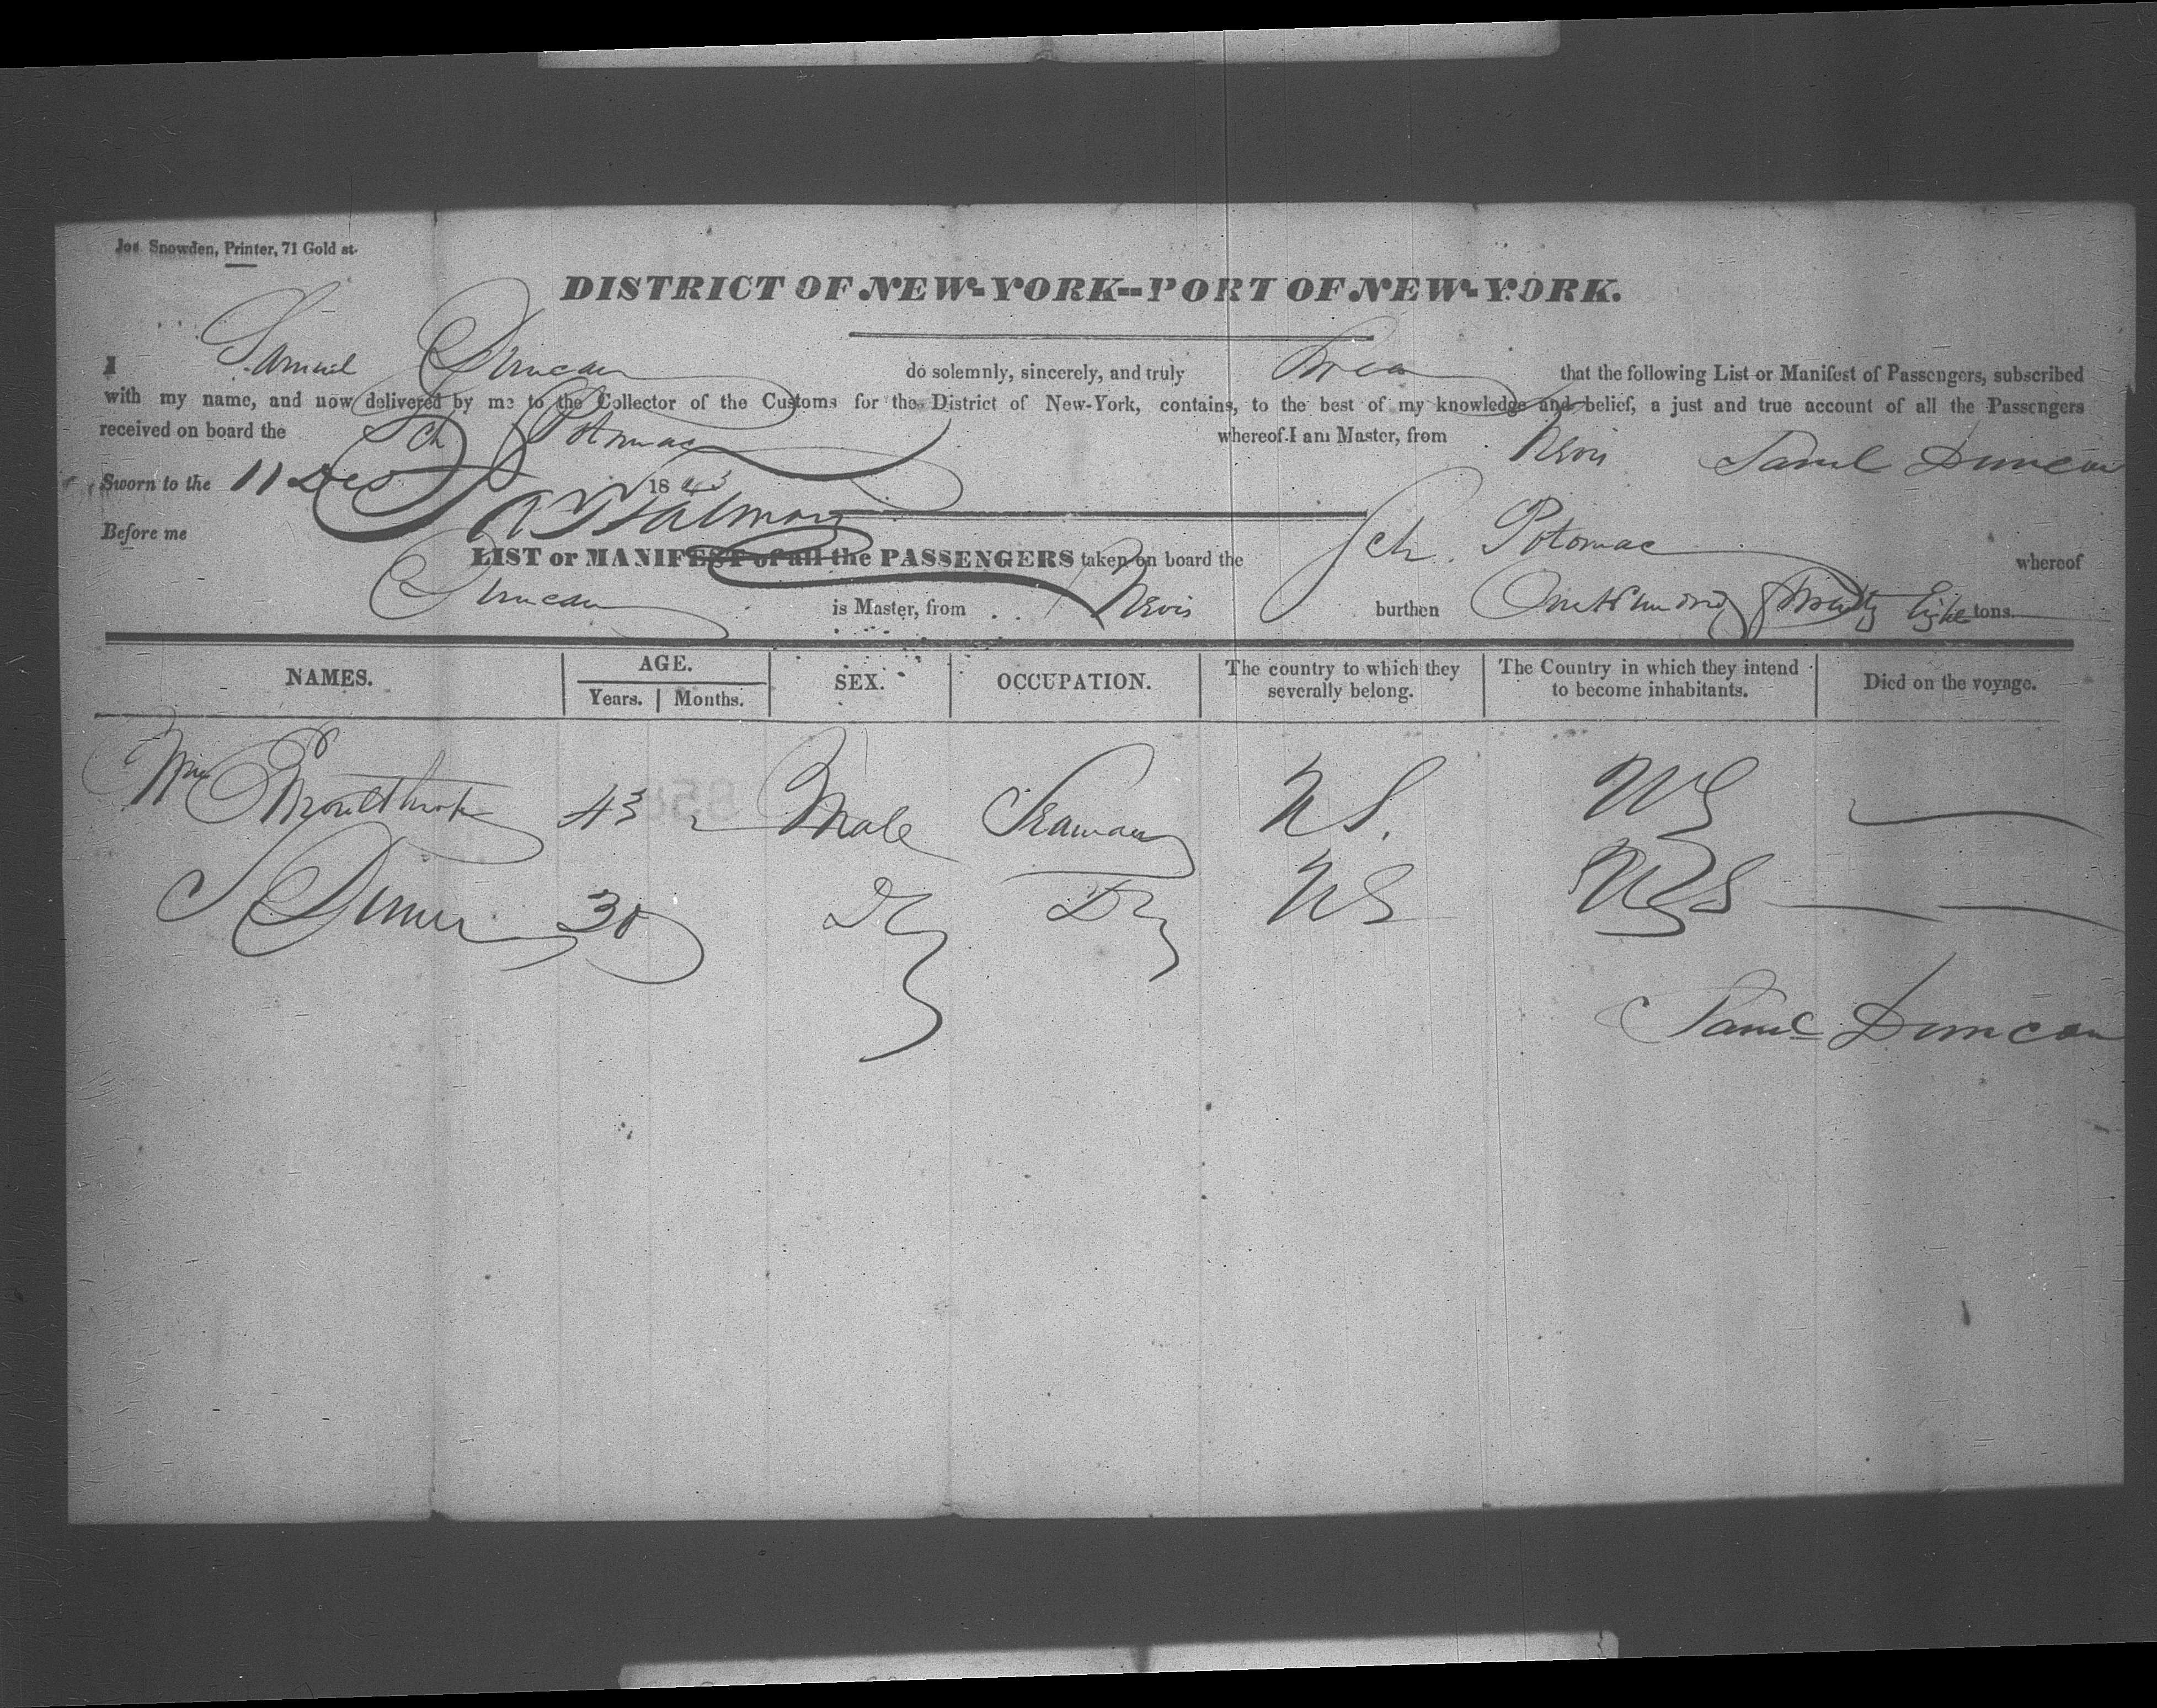 Jos Snowden, Printer, 71 Gold st.
DISTRICT OF NEW-YORK--PORT OF NEW-YORK.
I Samuel Duncan do solemnly, sincerely, and truly Swear that the following List or Manifest of Passengers, subscribed
with my name, and now delivered by me to the Collector of the Customs for the District of New-York, contains, to the best of my knowledge and belief, a just and true account of all the Passengers
received on board the Sch Potomac whereof I am Master, from Nevis Saml Duncan
Sworn to the 11 Dec 1843
Before me
LIST or MANIFEST of all the PASSENGERS taken on board the Sch. Potomac whereof
Duncan is Master, from Nevis burthen One Hundred & Eight tons
NAMES. AGE. Years. Months. SEX. OCCUPATION. The country to which they severally belong. The Country in which they intend to become inhabitants. Died on the voyage.
Wm Moulthrop 43 Male Seaman US. US
J Dimer 30 Do Do US US
Saml Duncan